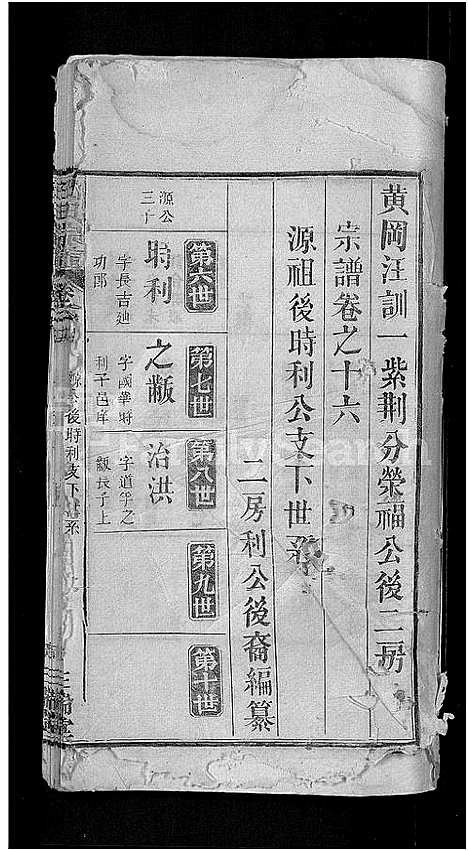 黄岡汪訓一紫荆分榮福公後二房
宗譜卷之十六
源祖後時利公支下世系
二房利公後裔編纂
第六世
第七世
第八世
第九世
第十世
源公
三子
時利
字長吉廸
功郎
之黻
字國華時
利子邑庠
治洪
字道平之
黻長子上
源公後時利支下世系